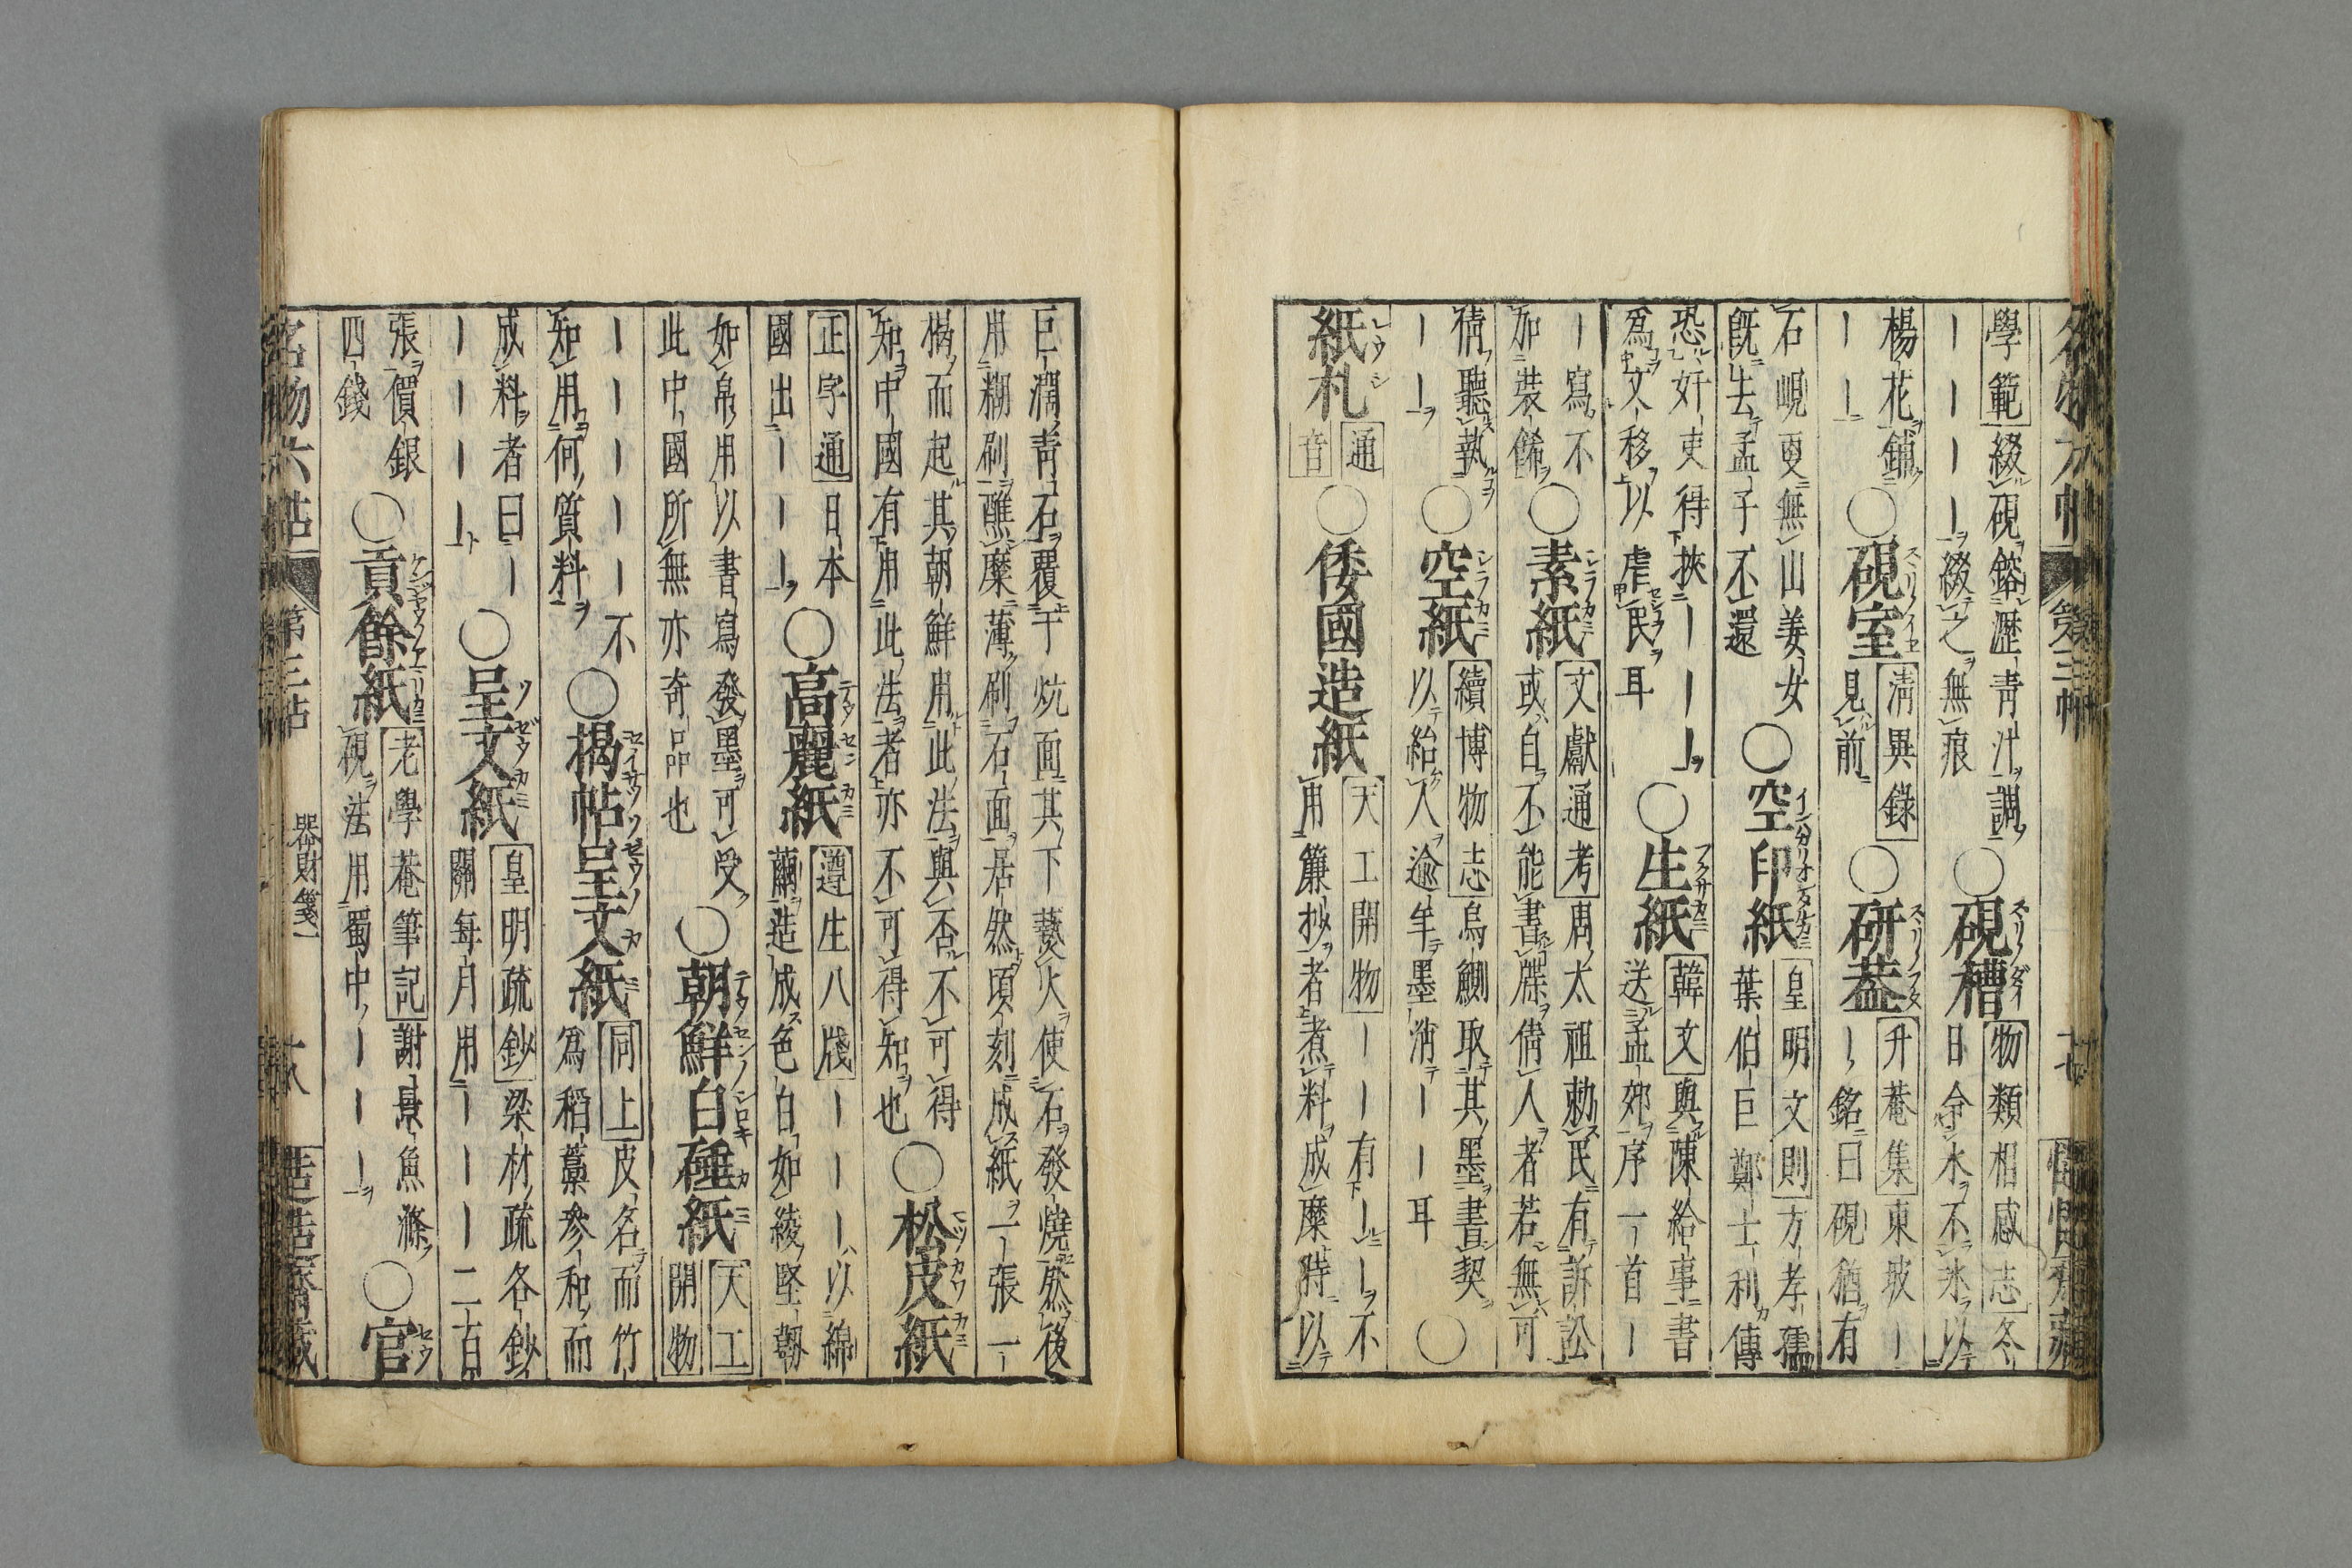 名物六帖 第三帖 十七
學範綴硯鎔瀝青汁調
ーーーー綴之無痕
○硯槽
物類相感志冬
日令水不氷以
楊花鋪
ーー
○硯室
清異録
見前
○研葢
升菴集東坡ー
ー銘曰硯猶有
石峴更無山姜女
既去孟子不還
○空印紙
皇明文則方孝孺
葉伯巨鄭士利傳
恐奸吏得挾ーーー
為文移以虐民耳
○生紙
韓文與陳給事書
送孟郊序一首ー
ー寫不
加裝餙
○素紙
文獻通考周太祖勅民有訴訟
或自不能書牒倩人者若無可
倩聽執
ーー
○空紙
續博物志烏鰂取其墨書契
以紿人逾年墨消ーー耳
○
紙札
通
音
○倭國造紙
天工開物ーー有ーー不
用簾抄者煮料成糜時以
巨濶青石覆于炕面其下爇火使石發燒然後
用糊刷醮糜薄刷石面居然頃刻成紙一張一
楬而起其朝鮮用此法與否不可得
知中國有用此法者亦不可得知也
○松皮紙
正字通日本
國出ーーー
○高麗紙
遵生八牋ーーー以綿
繭造成色白如綾堅韌
如帛用以書寫發墨可受
此中國所無亦奇品也
○朝鮮白硾紙
天工
開物
ーーーーー不
知用何質料
○楬帖呈文紙
同上皮名而竹
為稻藁参和而
成料者曰ー
ーーーー
○呈文紙
皇明疏鈔梁材疏各鈔
關每月用ーーーー二百
張價銀
四錢
○貢餘紙
老學菴筆記謝景魚滌
硯法用蜀中ーーー
○官
名物六帖 第三帖 器財箋一 十八